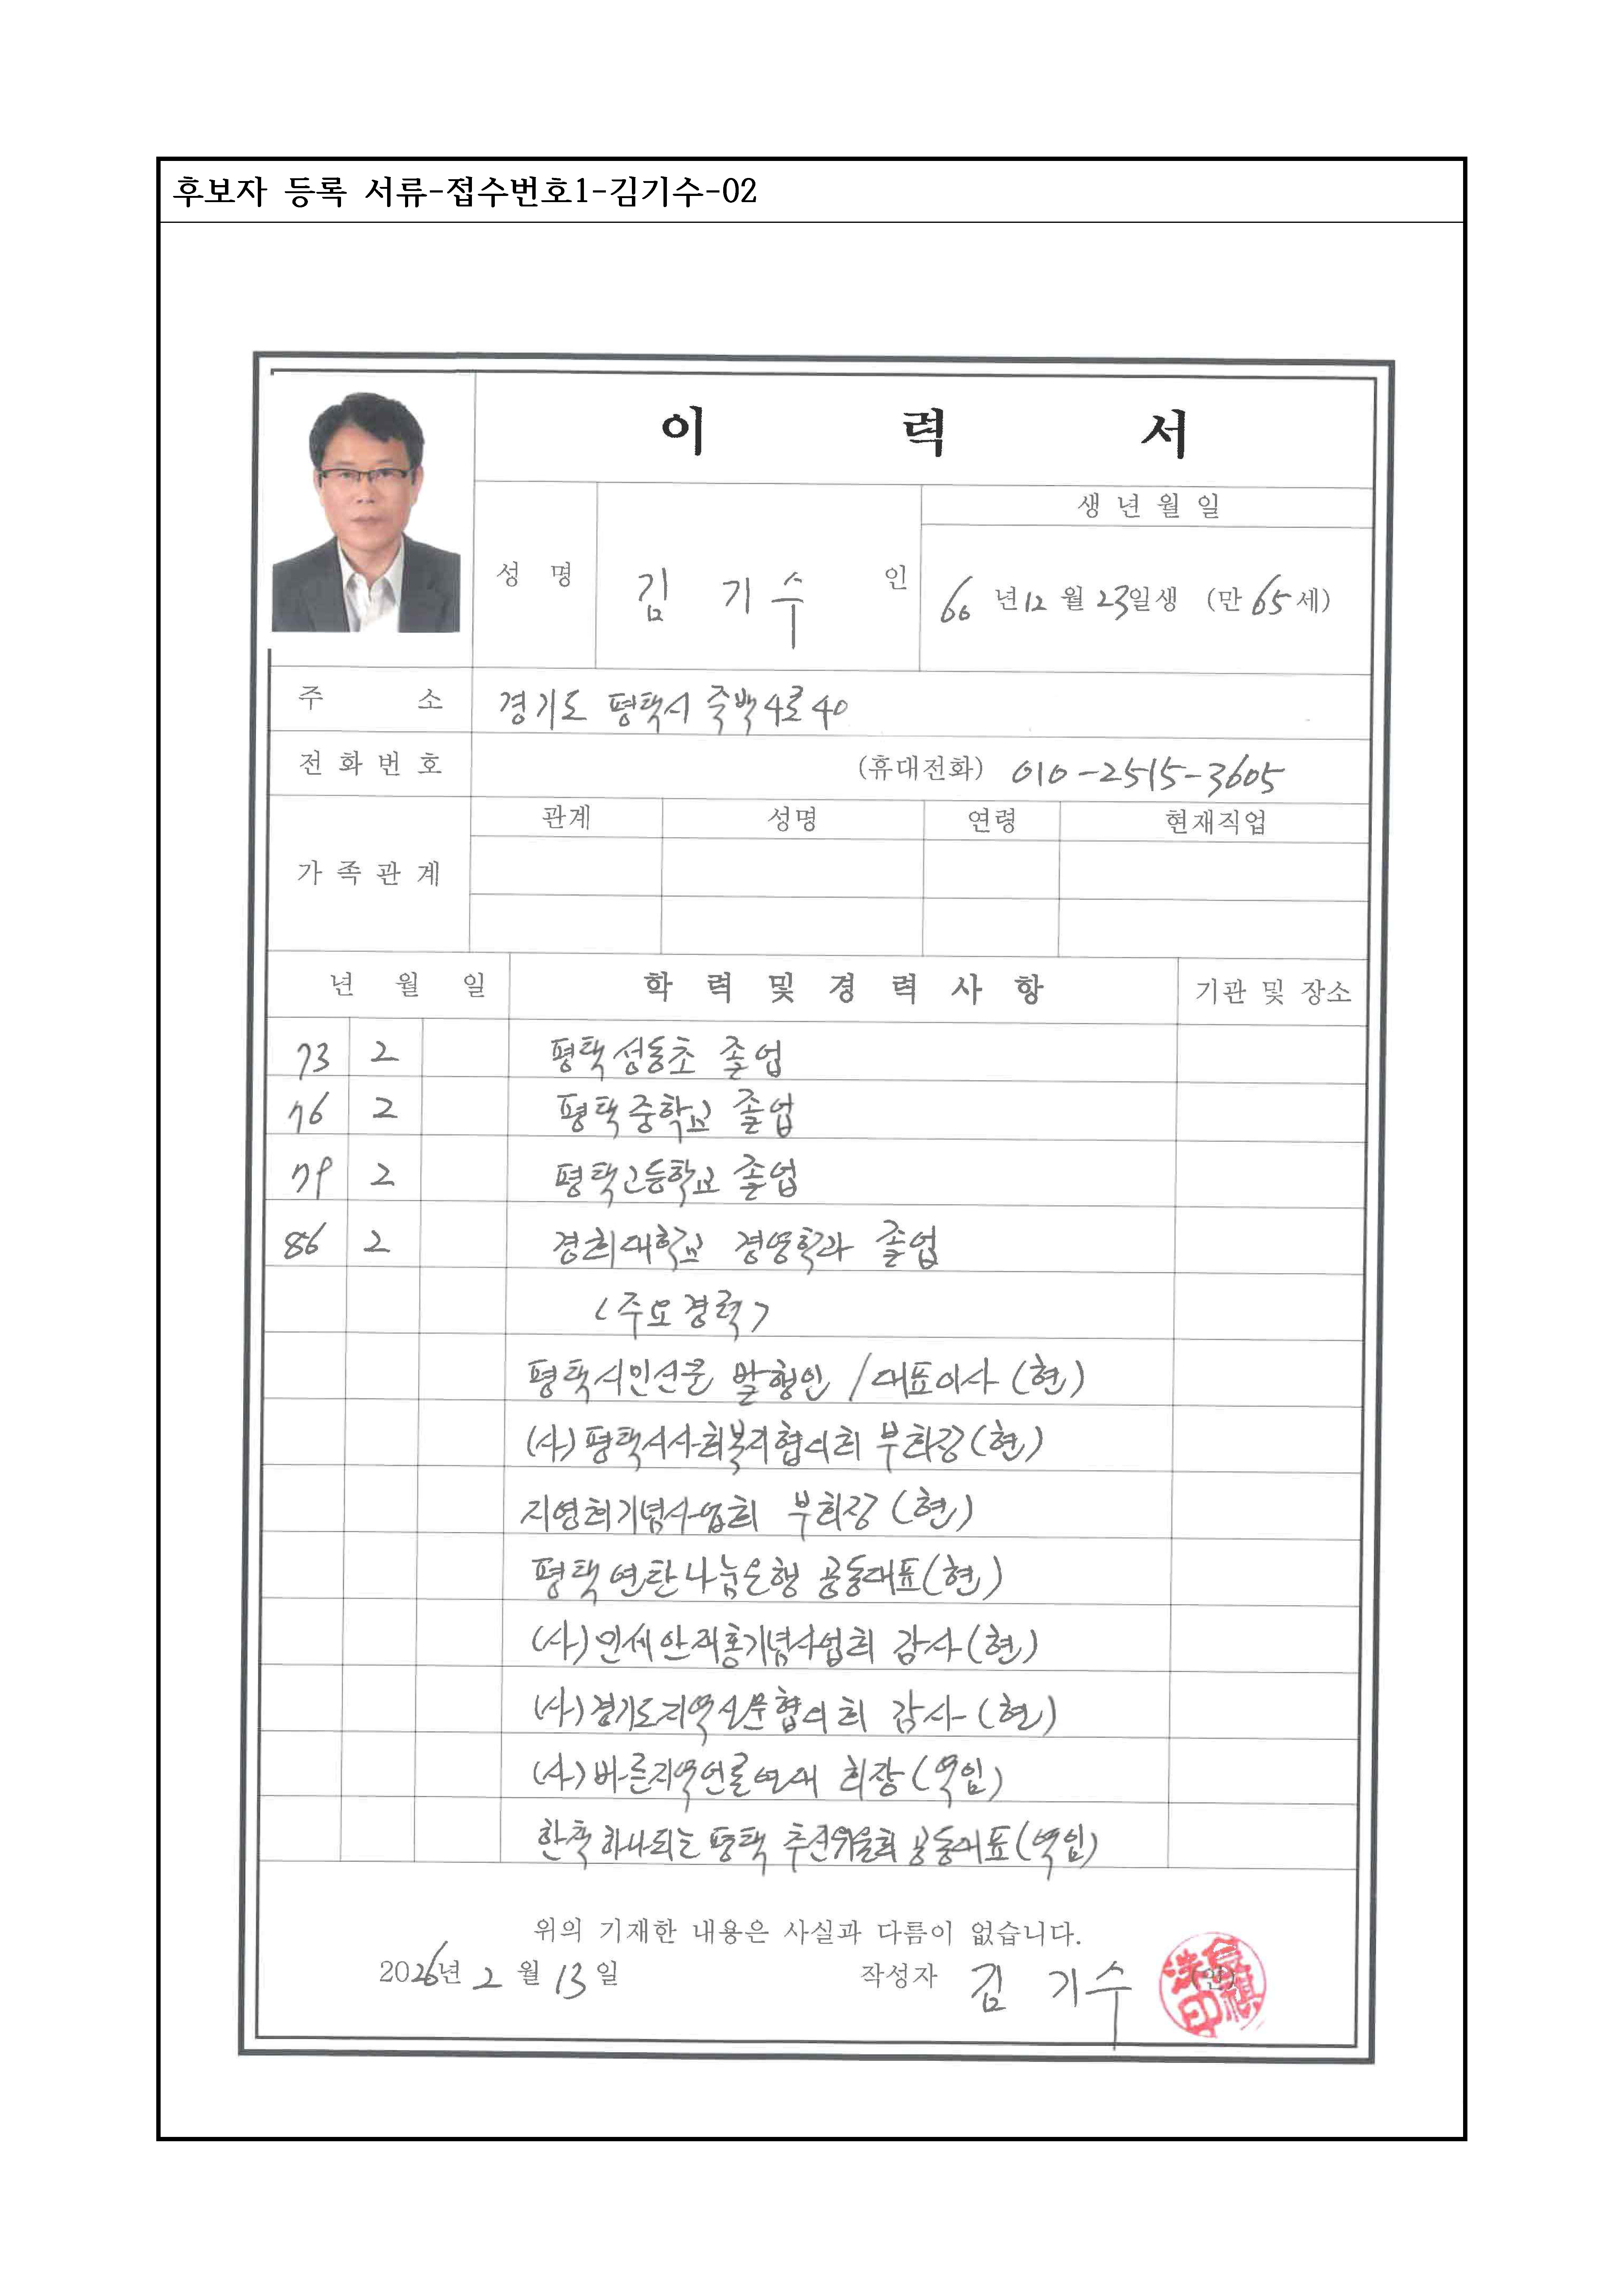 후보자 등록 서류-접수번호1-김기수-02
이 력 서
생 년 월 일
성 명 김 기 수 인
66 년 12 월 23일생 (만 65 세)
주 소 경기도 평택시 죽백4로 40
전 화 번 호 (휴대전화) 010-2515-3605
가 족 관 계 관계 성명 연령 현재직업
년 월 일 학 력 및 경 력 사 항 기관 및 장소
73 2 평택성동초 졸업
76 2 평택중학교 졸업
79 2 평택고등학교 졸업
86 2 경희대학교 경영학과 졸업
<주요경력>
평택시민신문 발행인 / 대표이사 (현)
(사)평택시사회복지협의회 부회장(현)
지영희기념사업회 부회장 (현)
평택연탄나눔은행 공동대표(현)
(사)민세안재홍기념사업회 감사(현)
(사)경기도지역신문협의회 감사 (현)
(사)바른지역언론연대 회장(역임)
한책하나되는 평택 추진위원회 공동대표(역임)
위의 기재한 내용은 사실과 다름이 없습니다.
2026년 2 월 13 일 작성자 김 기수 (인)